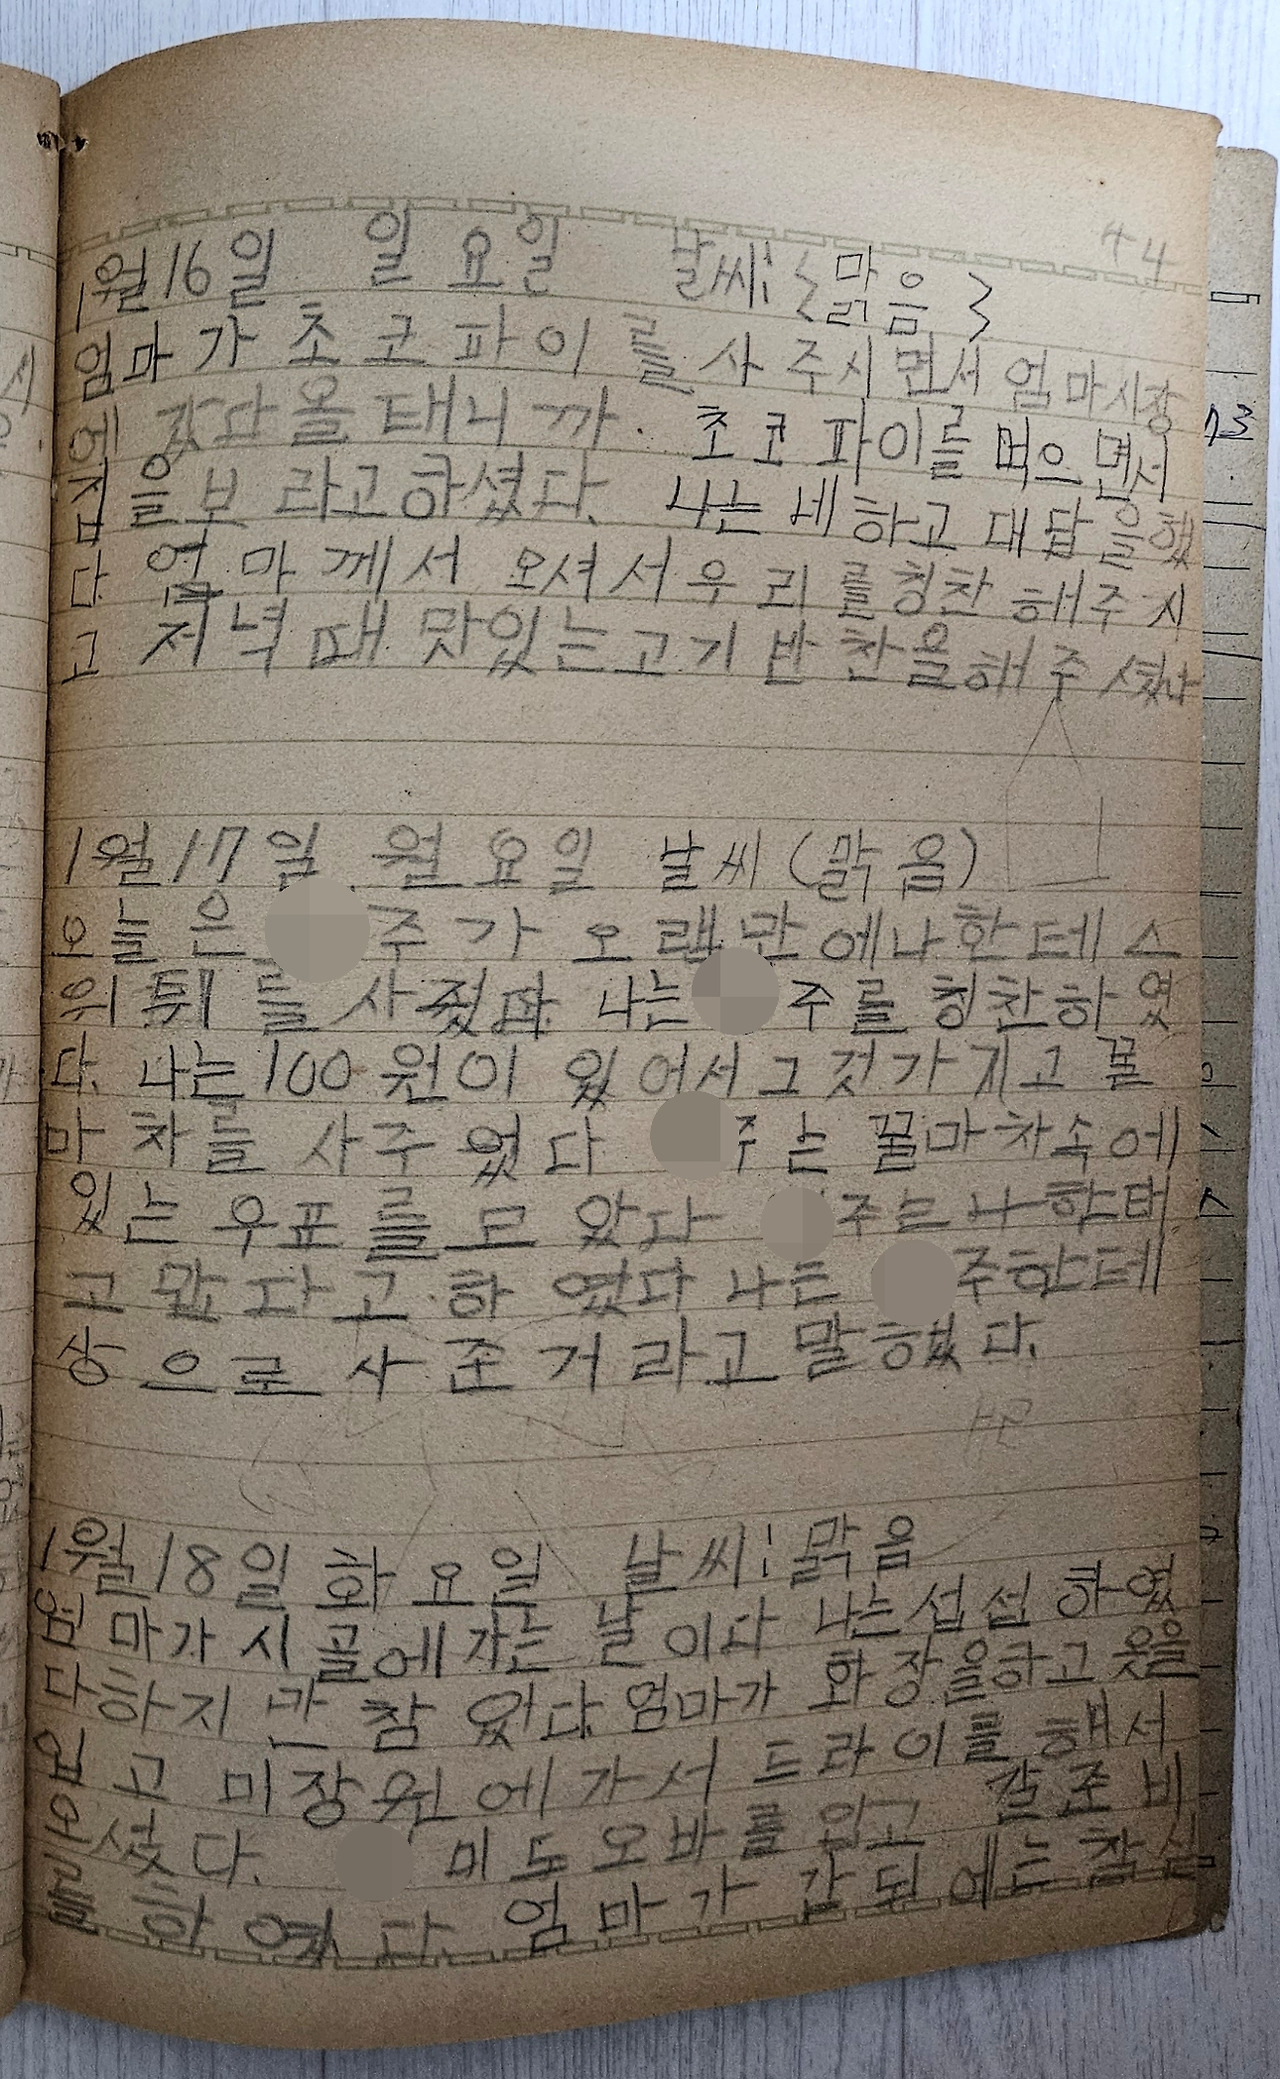 44
1월 16일 일요일 날씨: {맑음}
엄마가 초코파이를 사 주시면서 엄마시장
에 갔다올태니까. 초코파이를 먹으면서
집을보라고하셨다. 나는 네하고 대답을했
다 엄마께서 오셔서우리를칭찬해주시
고 저녁때 맛있는고기 반찬을해주셨다
1월 17일. 월요일 날씨(맑음)
오늘은 주가 오랜만에나한테 스
위튀를 사줬다. 나는 주를 칭찬하였
다. 나는 100원이 있어서그것가지고 꿀
마차를 사주었다 주는 꿀마차속에
있는 우표를 모았다 주는나한태
고맙다고.하였다 나는 주한테
상으로 사준거라고 말했다.
1월 18일 화요일 날씨: 맑음
엄마가시골에가는날이다 나는섭섭하였
다하지만 참았다. 엄마가 화장을하고옷을
입고 미장원에가서 드라이를해서
오셨다. 미도오바를입고 갈준비
를하였다. 엄마가 간뒤에는참